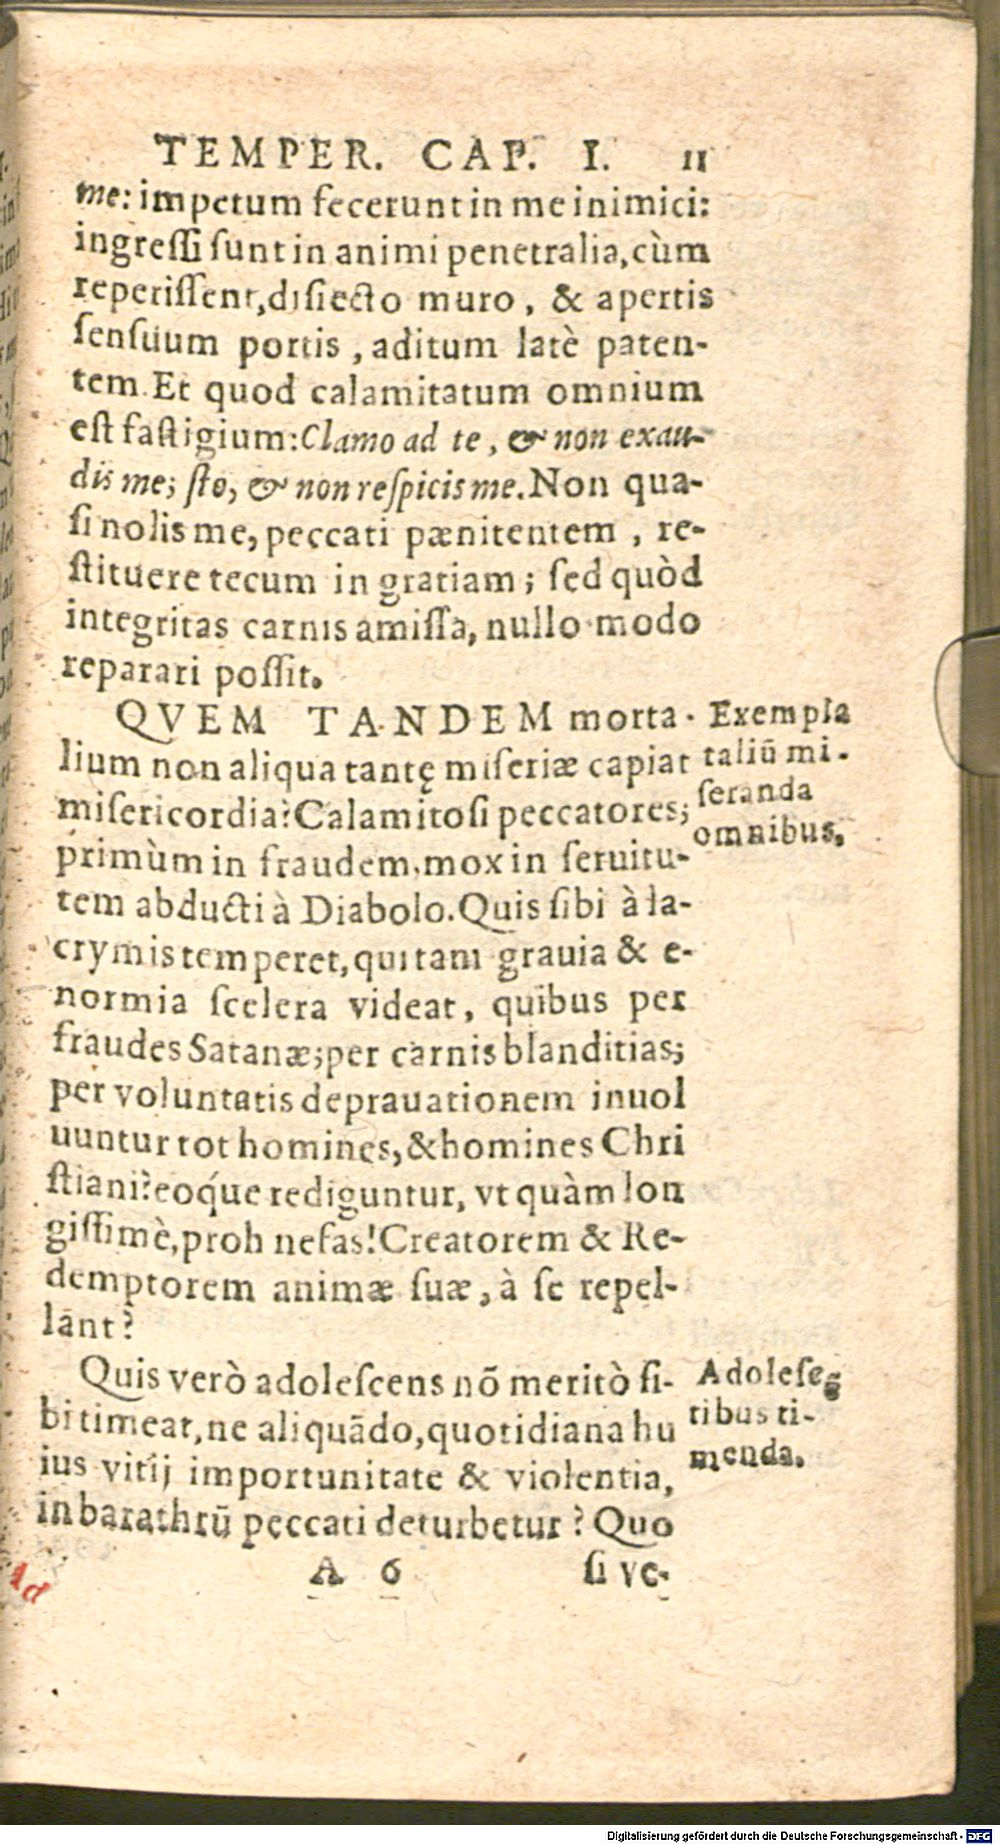 TEMPER. CAP. I. 11
me: impetum fecerunt in me inimici:
ingreſſi ſunt in animi penetralia, cùm
reperiſſent, diſiecto muro, & apertis
ſenſuum portis, aditum latè paten-
tem. Et quod calamitatum omnium
eſt faſtigium: Clamo ad te, & non exau-
dis me; ſto, & non reſpicis me. Non qua-
ſi nolis me, peccati pænitentem, re-
ſtituere tecum in gratiam; ſed quòd
integritas carnis amiſſa, nullo modo
reparari poſſit.
QVEM TANDEM morta-
lium non aliqua tantę miſeriæ capiat
miſericordia? Calamitoſi peccatores;
primùm in fraudem, mox in ſeruitu-
tem abducti à Diabolo. Quis ſibi à la-
crymis temperet, qui tam grauia & e-
normia ſcelera videat, quibus per
fraudes Satanæ; per carnis blanditias;
per voluntatis deprauationem inuol
uuntur tot homines, & homines Chri
ſtiani? eoq́ue rediguntur, vt quàm lon
giſſimè, proh nefas! Creatorem & Re-
demptorem animæ ſuæ, à ſe repel-
lãnt?
Exempla
taliũ mi-
ſeranda
omnibus.
Quis verò adoleſcens nõ meritò ſi-
bi timeat, ne aliquãdo, quotidiana hu
ius vitij importunitate & violentia,
in barathrũ peccati deturbetur? Quo
Adoleſcẽ
tibus ti-
menda.
A 6 ſi ve-
Ad
Digitalisierung gefördert durch die Deutsche Forschungsgemeinschaft - DFG